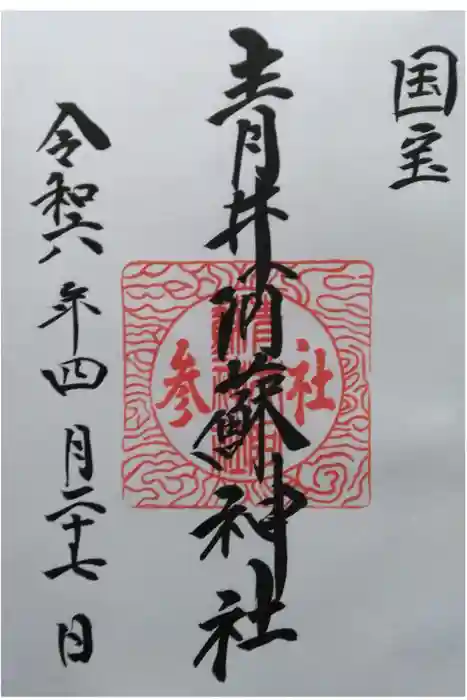 国宝
青井阿蘇神社
社参
令和六年四月二十七日